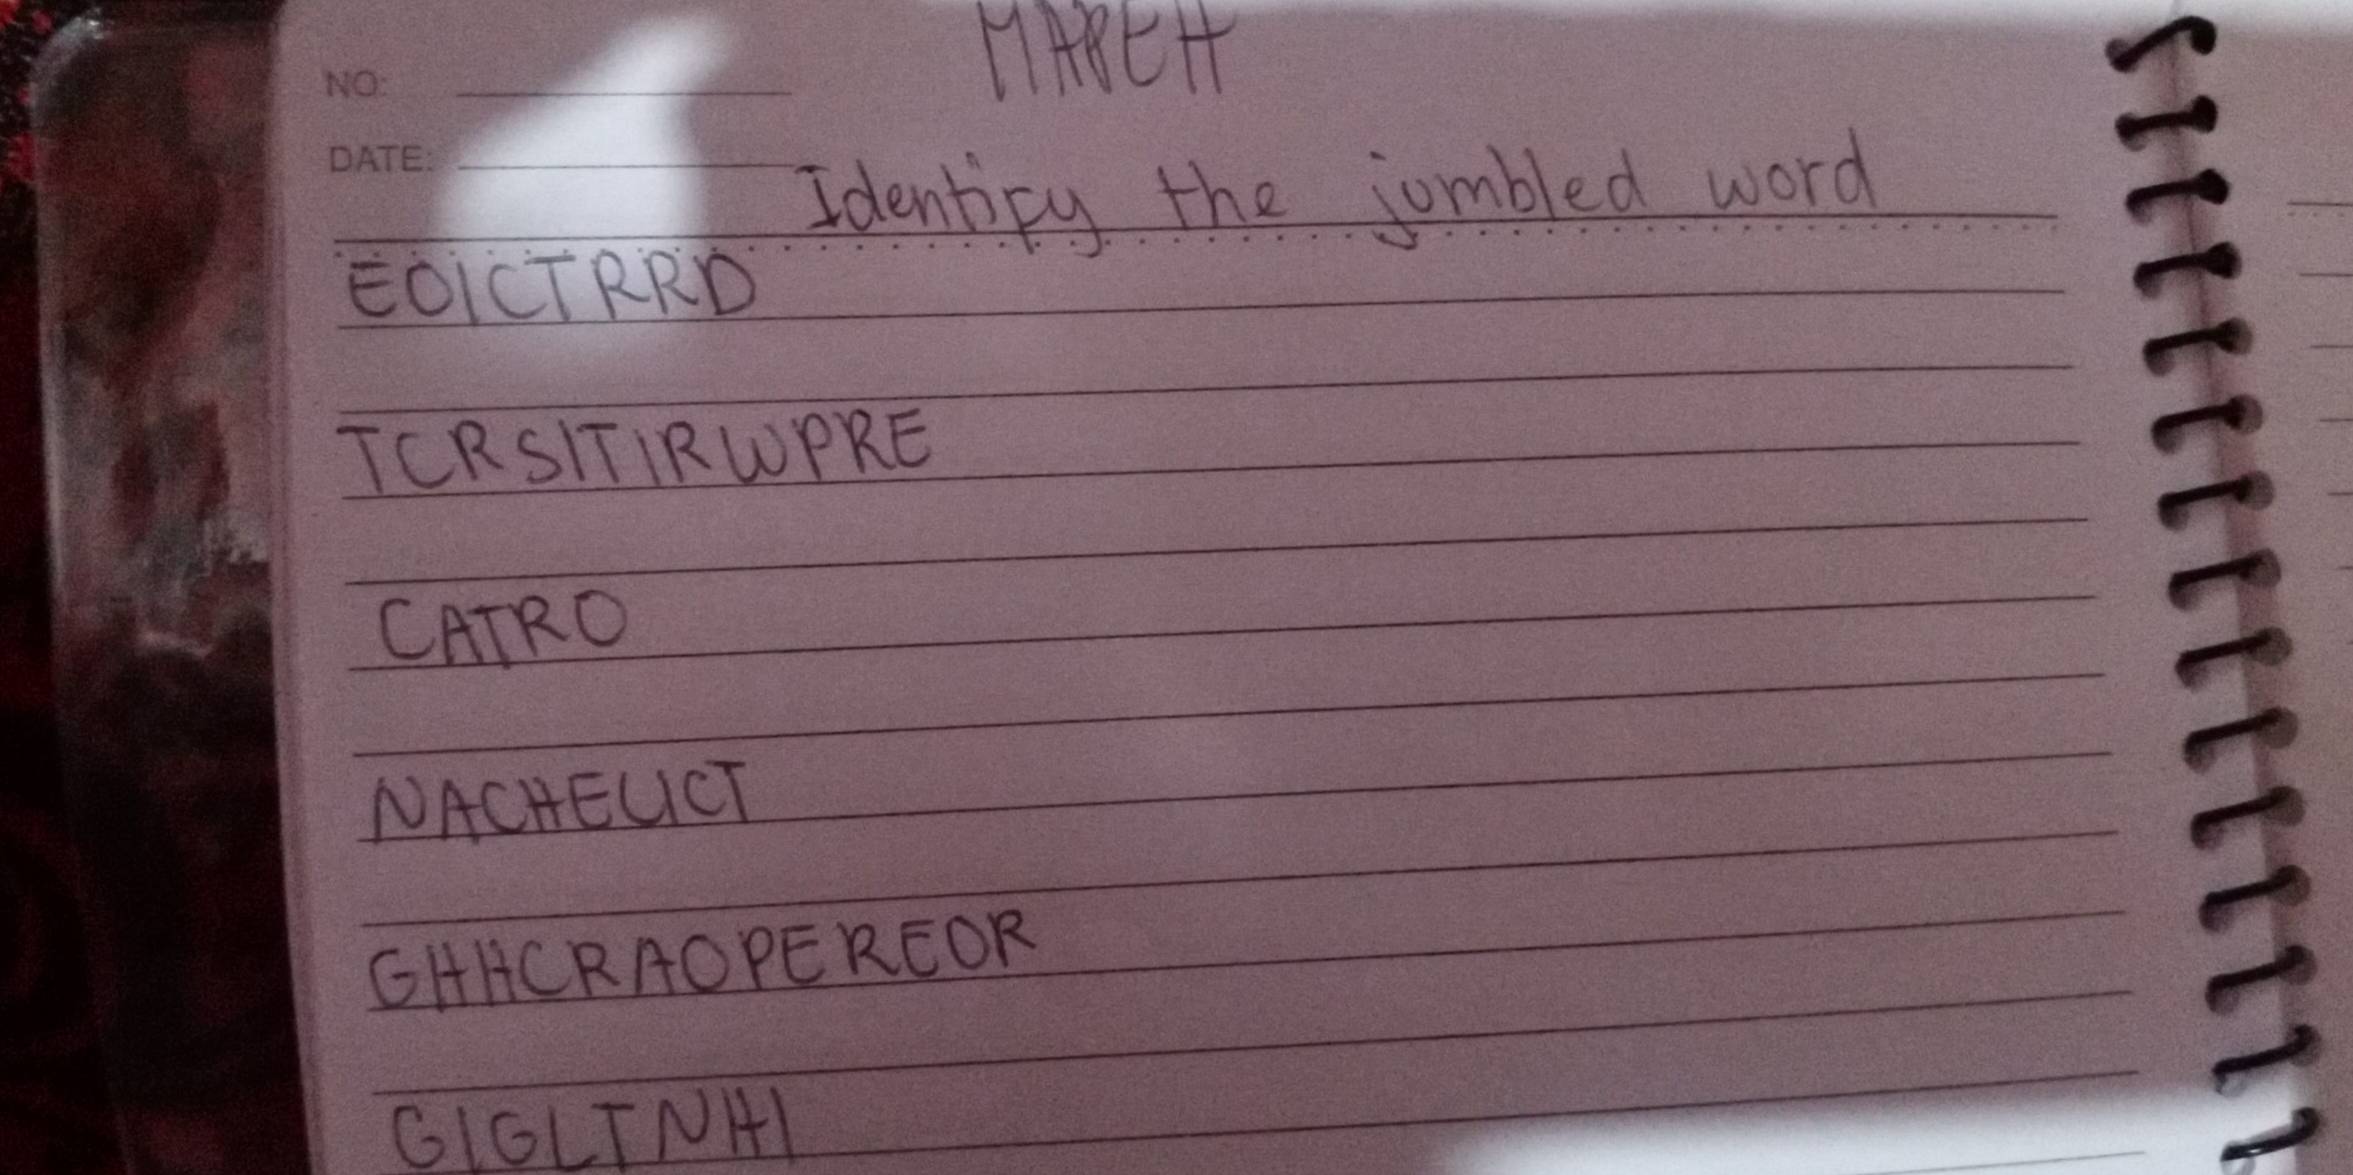 MAPEH
NO:
DATE:
Identify the jumbled word
EOICTRRD
TCRSITIRWPRE
CATRO
NACHEUCT
GHHCRAOPEREOR
GIGLTNHI